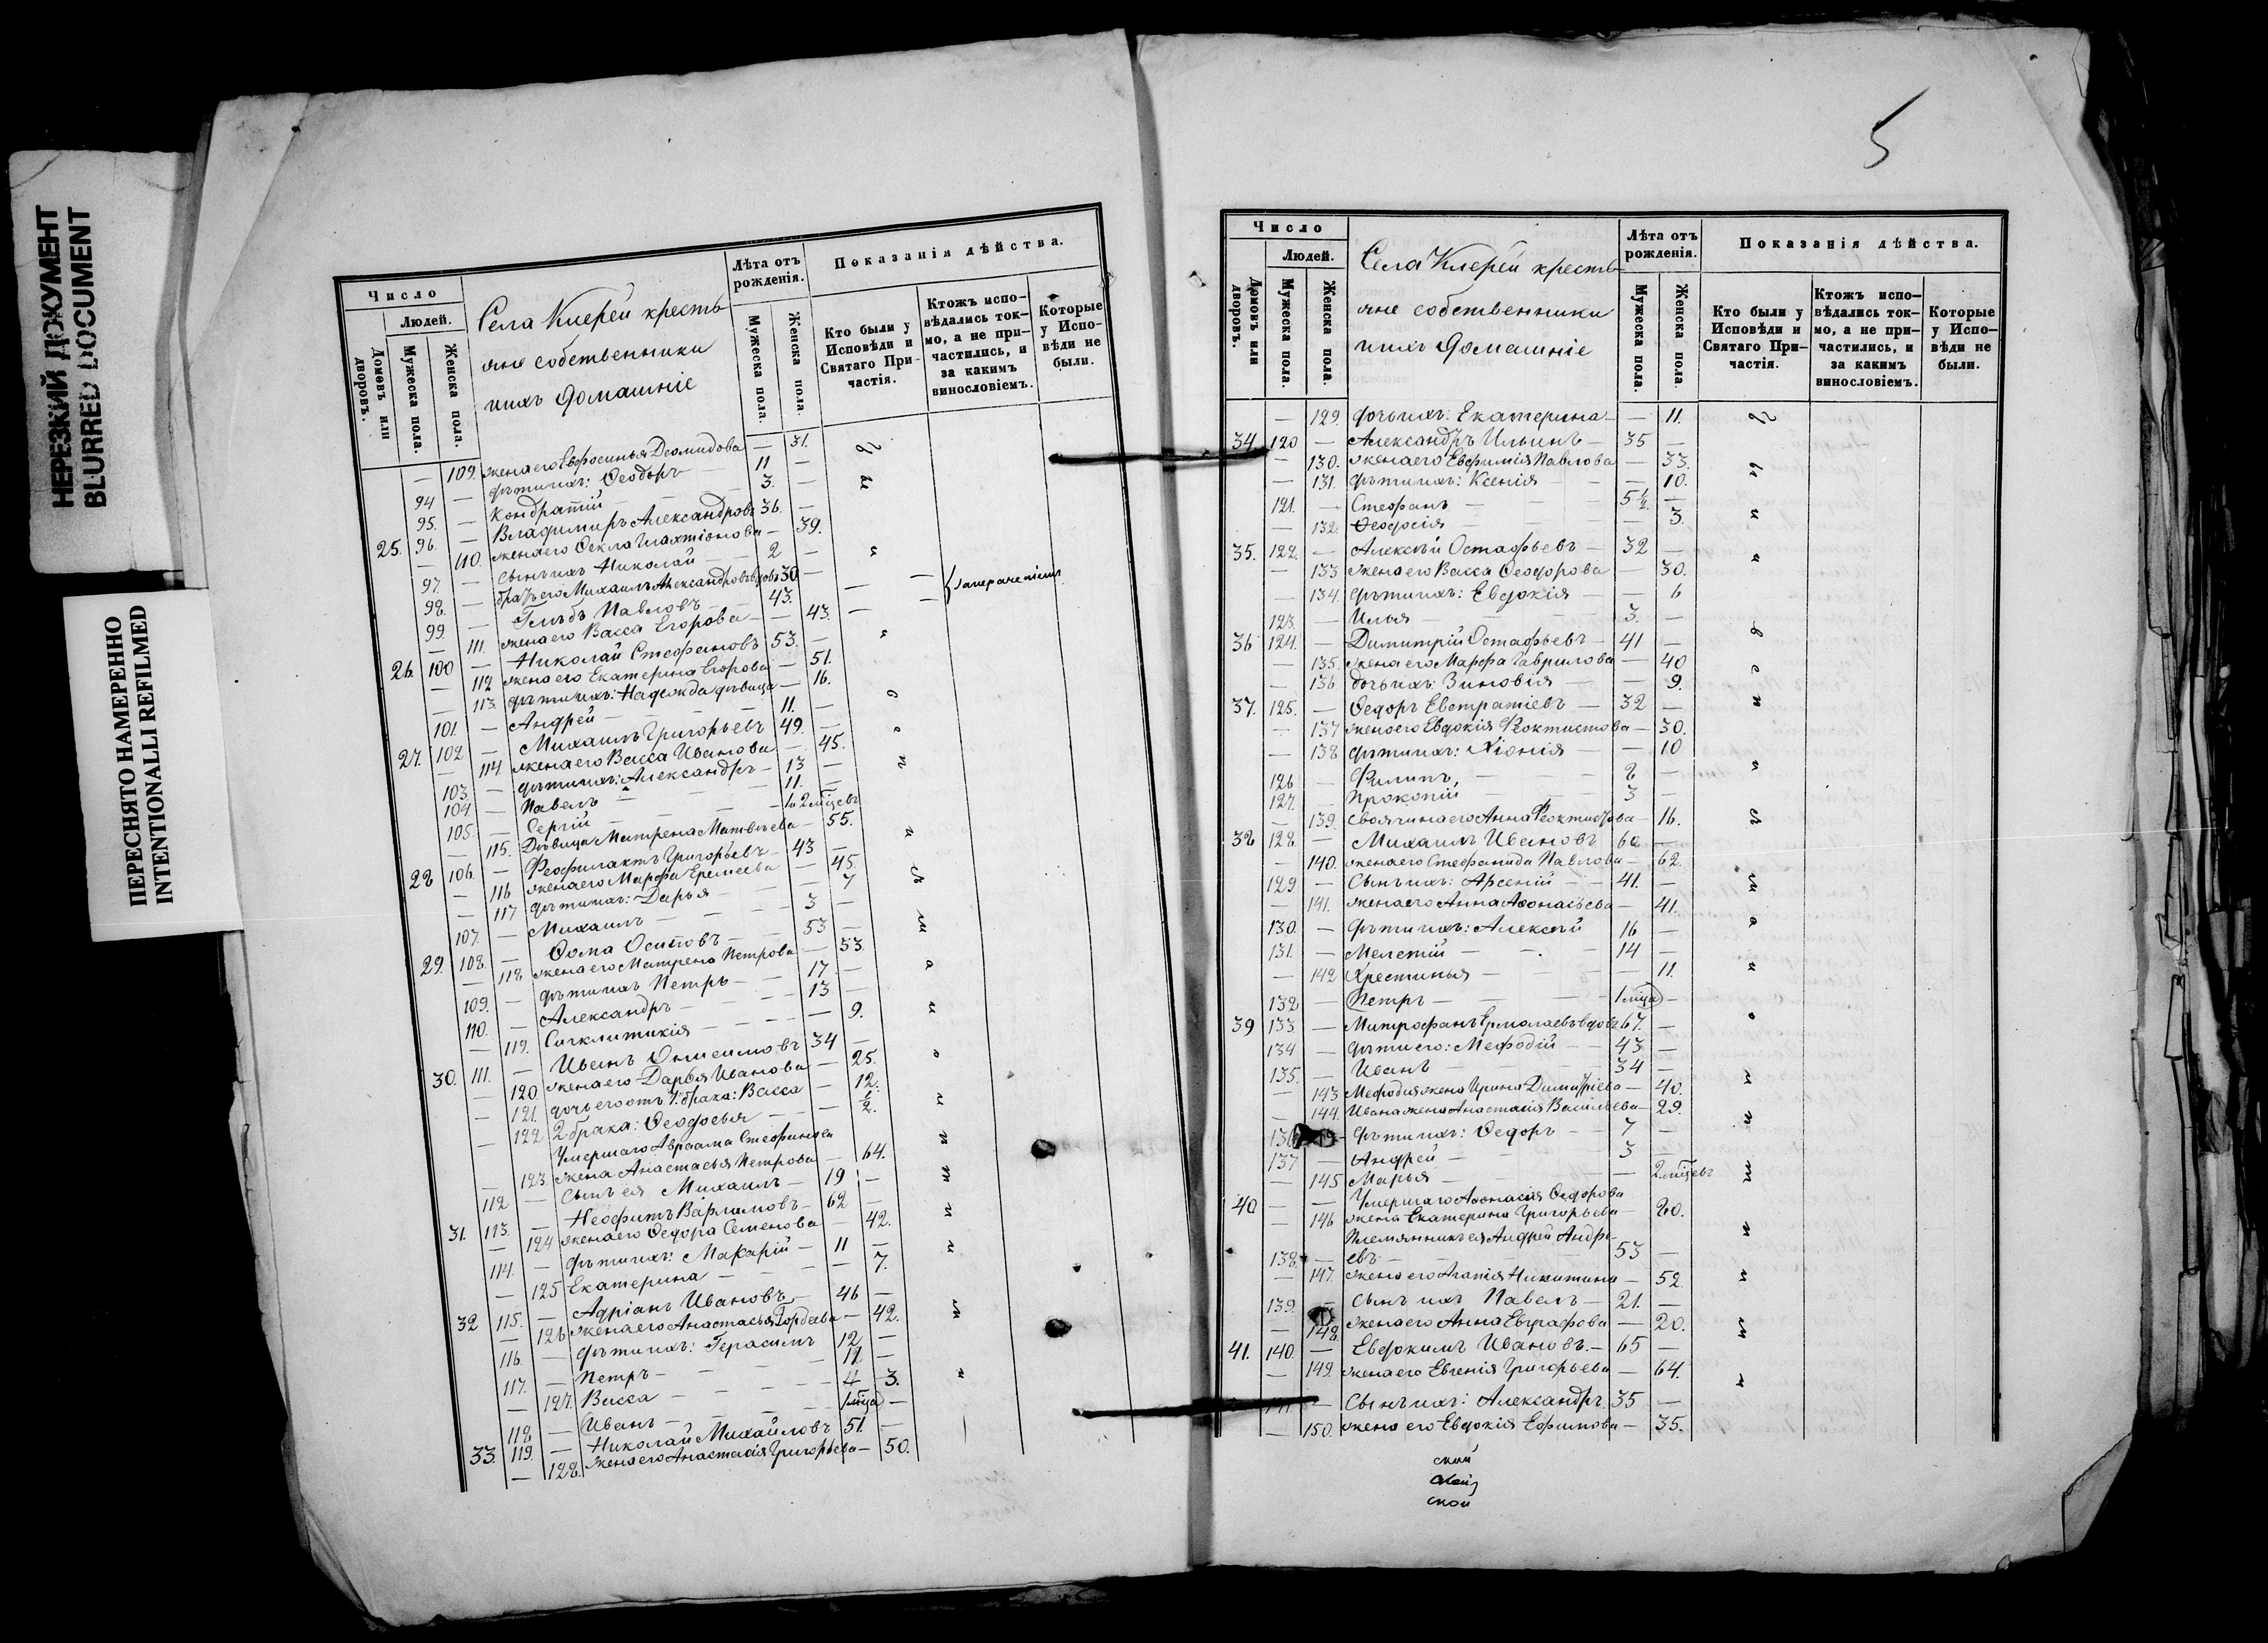 НЕРЕЗКИЙ ДОКУМЕНТ
BLURRED DOCUMENT
ПЕРЕСНЯТО НАМЕРЕННО
INTENTIONALLI REFILMED
Число
Людей.
Домовъ или дворовъ.
Мужеска пола.
Женска пола.
Села Кнерей кресть
яне собственники
ихъ домашніе
Лѣта отъ рожденія.
Мужеска пола.
Женска пола.
Показанія дѣйства.
Кто были у Исповѣди и Святаго При-частія.
Ктожъ испо-вѣдались ток-мо, а не при-частились, и за какимъ винословіемъ.
Которые у Испо-вѣди не были.
— 109. жена его Евфросинья Деомидова — 31.
94 — дѣти ихъ: Ѳеодоръ 11 —
95. — Кондратій 3. —
25. 96. — Владимиръ Александровъ 36. —
— 110. жена его Ѳекла — 39.
97. — сынъ ихъ Николай — 2 —
98. — братъ его Михаилъ Александровъ вдовъ 30 —
99. — Глѣбъ Павловъ — 43. —
— 111. жена его Васса Егорова — — 43.
26. 100 — Николай Стефановъ 53. —
— 112 жена его Екатерина Егорова — 51.
— 113. дѣти ихъ: Надежда дѣвица — 16.
101. — Андрей — 11. —
27. 102 — Михаилъ Григорьевъ 49. —
— 114. жена его Васса Иванова — 45.
103. — дѣти ихъ: Александръ — 13 —
104 — Павелъ — 11. —
105. — Сергій — 2 мѣцевъ
— 115. Дѣвица Матрена Матвѣева — 55.
28 106. — Феофилактъ Григорьевъ — 43 —
— 116 жена его Марфа Еремеева — 45.
— 117 дѣти ихъ: Дарья — — 7
107. — Михаилъ — 3 —
29. 108. — Ѳома Осиповъ — 53 —
— 118 жена его Матрена Петрова — 53.
109. — дѣти ихъ Петръ — 17 —
110. — Александръ — 13 —
— 119. Сигклитикія — — 9.
30. 111. — Иванъ Онисимовъ 34 —
— 120 жена его Дарья Иванова — 25.
— 121. дочь его отъ 1. брака: Васса — 12.
— 122 2 брака: Ѳеодосья — — 1/2.
Умершаго Авраама Стефанова
— 123. жена Анастасья Петрова — 64.
112 — сынъ ея Михаилъ — 19 —
31. 113. — Неофитъ Варламовъ — 62 —
— 124 жена его Ѳедора Семенова — 42.
114. — дѣти ихъ: Макарій — 11 —
— 125 Екатерина — — 7.
32 115. — Адріанъ Ивановъ — 46 —
— 126 жена его Анастасья Гордеева — 42.
116 — дѣти ихъ: Герасимъ 12 —
117. — Петръ — 11 —
— 127. Васса — 3.
118 — Иванъ — 1 мѣца —
33. 119. — Николай Михайловъ 51. —
— 128. жена его Анастасія Григорьева — 50.
5
Число
Людей.
Домовъ или дворовъ.
Мужеска пола.
Женска пола.
Села Кнерей кресть-
яне собственники
ихъ домашніе
Лѣта отъ рожденія.
Мужеска пола.
Женска пола.
Показанія дѣйства.
Кто были у Исповѣди и Святаго При-частія.
Ктожъ испо-вѣдались ток-мо, а не при-частились, и за какимъ винословіемъ.
Которые у Испо-вѣди не были.
— 129. дочь ихъ: Екатерина — — 11.
34. 120 — Александръ Ильинъ — 35 —
— 130. жена его Евфимія Павлова — 33.
— 131. дѣти ихъ: Ксенія — — 10.
121. — Стефанъ — 5 1/2. —
— 132. Ѳеодосія — — 3.
35. 122. — Алексѣй Остафьевъ — 32 —
— 133 жена его Васса Ѳеодорова — 30.
— 134. дѣти ихъ: Евдокія — — 6
123. — Илья — 3. —
36 124. — Димитрій Остафьевъ — 41 —
— 135. жена его Марфа Гаврилова — 40
— 136 дочь ихъ: Зиновія — — 9.
37. 125. — Ѳедоръ Евстратіевъ — 32 —
— 137 жена его Евдокія Феоктистова — 30.
— 138 дѣти ихъ: Хіонія — — 10
126 — Филипъ, — 8 —
127. — Прокопій — 3 —
— 139. Своячина его Анна Феоктистова — 16.
38 128. — Михаилъ Ивановъ 60 —
— 140. жена его Стефанида Павлова — 62.
129 — Сынъ ихъ: Арсеній — 41. —
— 141. жена его Анна Аѳонасьева — 41.
130. — дѣти ихъ: Алексѣй 16 —
131. — Мелетій — 14 —
— 142 Христинья — — 11.
132 — Петръ — 1 мѣца —
39 133 — Митрофанъ Ермолаевъ вдовъ 67. —
134 — дѣти его: Мефодій — 43 —
135. — Иванъ — 34 —
— 143 Мефодія жена Ирина Димитріева — 40.
— 144. Ивана жена Анастасія Васильева — 29.
136 — дѣти ихъ: Ѳедоръ — 7 —
137 — Андрей — 3 —
— 145 Марья — — 2 мѣцевъ
40 — — Умершаго Аѳонасія Ѳедорова
— 146 жена Екатерина Григорьева — 80.
Племянникъ ея Андрей Андре-
138. — евъ — 53 —
— 147. жена его Агапія Никитина — 52.
139. — сынъ ихъ Павелъ — 21. —
— 148. жена его Анна Евграфова — 20.
41. 140. — Евдокимъ Ивановъ — 65 —
— 149. жена его Евгенія Григорьева — 64.
141 — Сынъ ихъ: Александръ 35 —
— 150. жена его Евдокія Ефимова — 35.
ской
ской